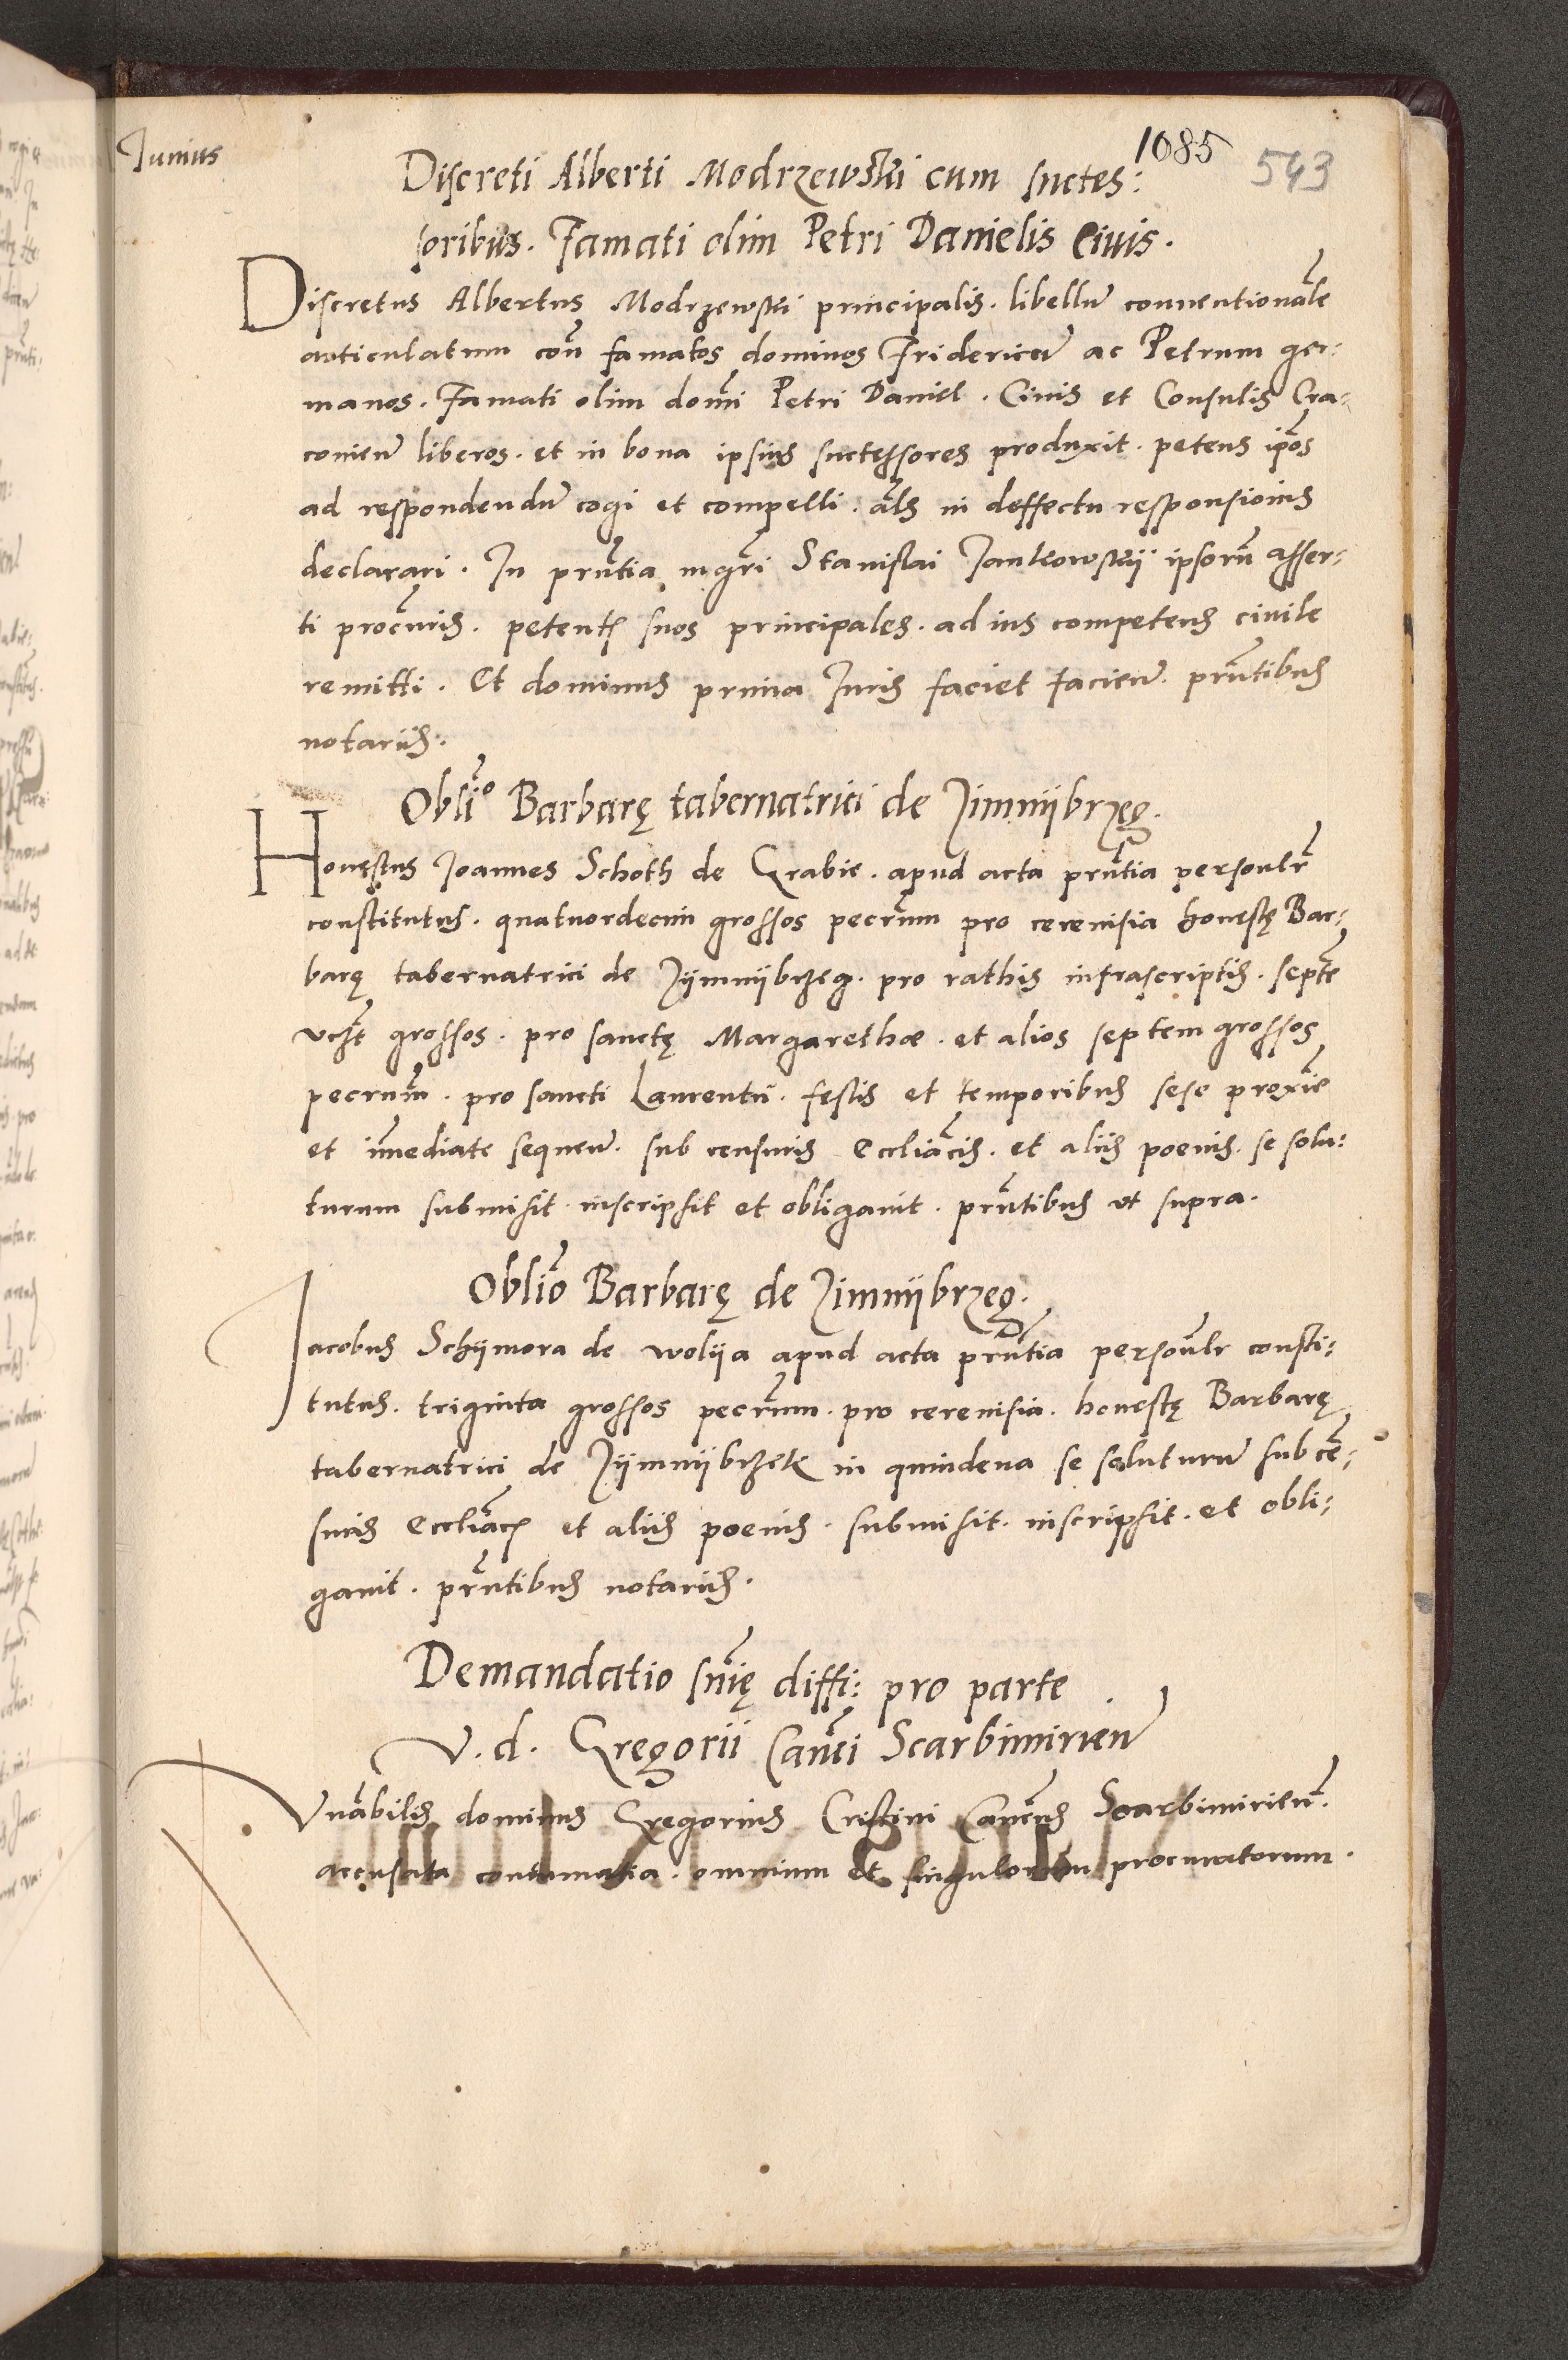 Junius
1085
543
Discreti Alberti Modrzewski cum succes:
soribus. Famati olim Petri Danielis Civis.
Discretus Albertus Modrzewski principalis. libellum conventionale
articulatum con famatos dominos Fridericum ac Petrum ger:
manos. Famati olim domi Petri Daniel. Civis et Consulis Cra:
covien liberos. et in bona ipsius successores produxit. petens ipos
ad respondendum cogi et compelli. als in deffectu responsionis
declarari. In pruntia mgri Stanislai Jankowskij ipsorum asser:
ti procuris. petentis suos principales. ad ius competens civile
remitti. Et dominus prima Juris faciet facien. pruntibus
notariis.
Oblio Barbarę tabernatrici de Zimnijbrzeg.
Honestus Joannes Schoth de Grabie. apud acta pruntia personlr
constitutus. quatuordecim grossos pecrum pro cerevisia honestę Bar:
barę tabernatrici de Zijmnijbrzeg. pro rathis infrascriptis. septe
vczt grossos. pro sanctę Margarethæ. et alios septem grossos
pecrum. pro sancti Laurentii. festis et temporibus sese proxie
et imediate sequen. sub censuris Eccliacis. et aliis poenis. se solu:
turum submisit inscripsit et obligavit. pruntibus ut supra.
Oblio Barbarę de Zimnijbrzeg.
Jacobus Schijmora de wolija apud acta pruntia personlr consti:
tutus. triginta grossos pecrum. pro cerevisia. honestę Barbarę
tabernatrici de Zijmnijbrzek in quindena se soluturum sub cen:
suris Eccliacis et aliis poenis. submisit. inscripsit. et obli:
gavit. pruntibus notariis.
Demandatio snię diffi: pro parte
V. d. Gregorii Canci Scarbimirien
Vnabilis dominus Gregorius Cristini Cancus Scarbimirien.
accusata contumatia. omnium et singulorum procuratorum.